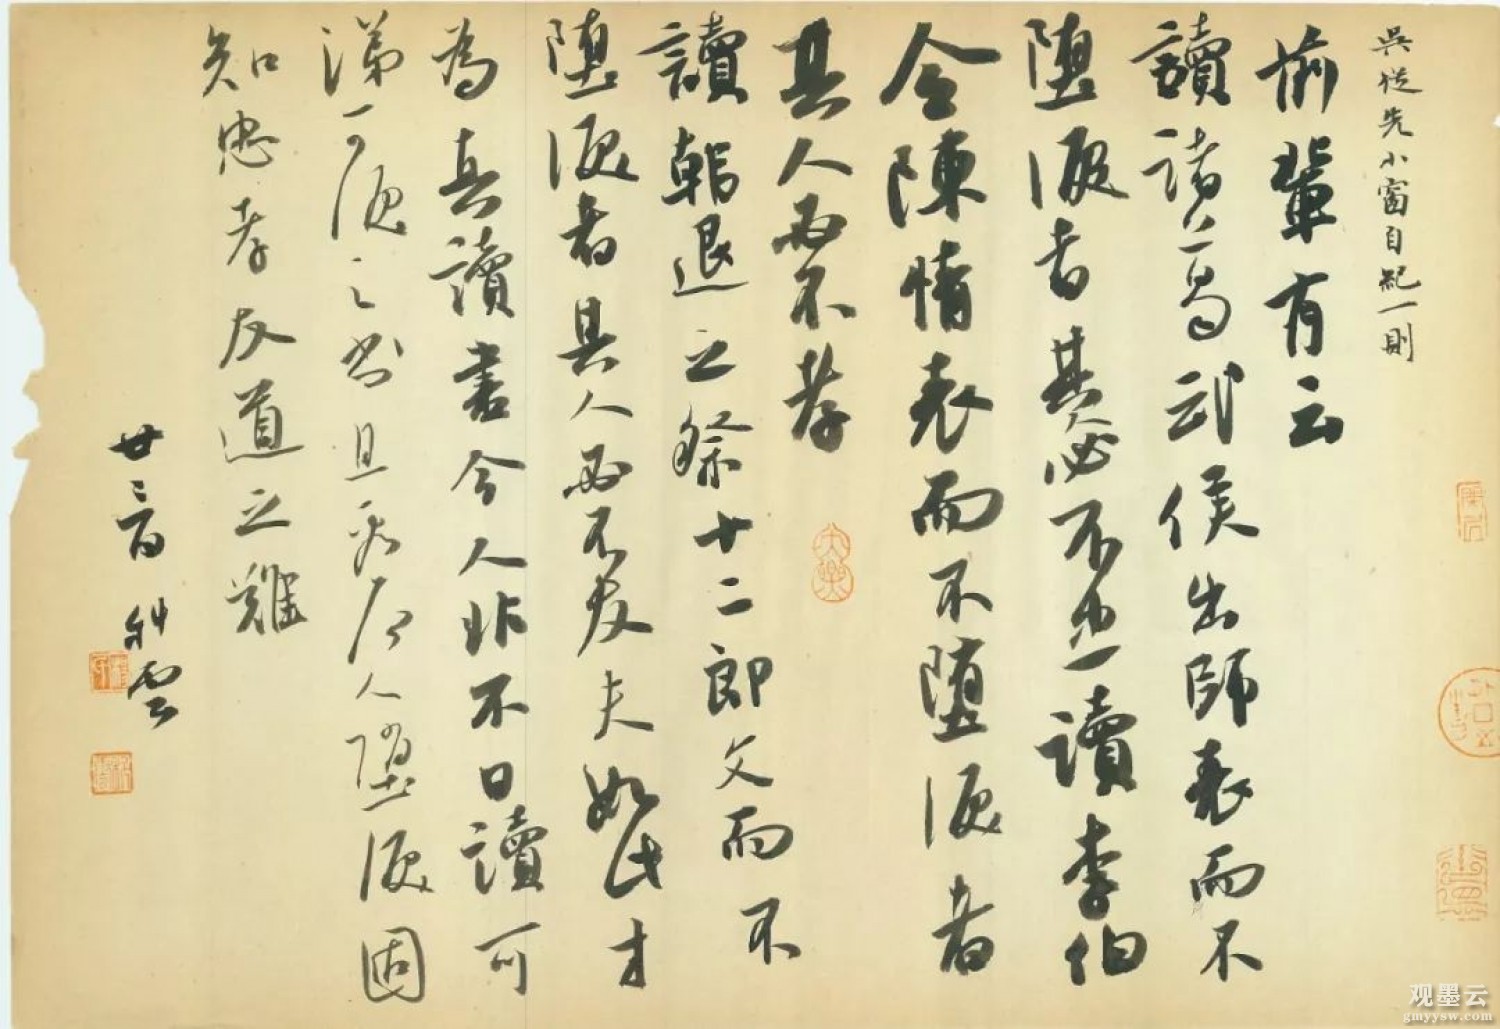 吳從先小窗自紀一則
前輩有云
讀諸葛武侯出師表而不
墮淚者其人必不忠讀李伯
令陳情表而不墮淚者
其人必不孝
讀韓退之祭十二郎文而不
墮淚者其人必不友夫如此才
為真讀書今人非不日讀可
涕可淚之書且有人墮淚固
知忠孝友道之難
廿雲
观墨云
gmyysw.com